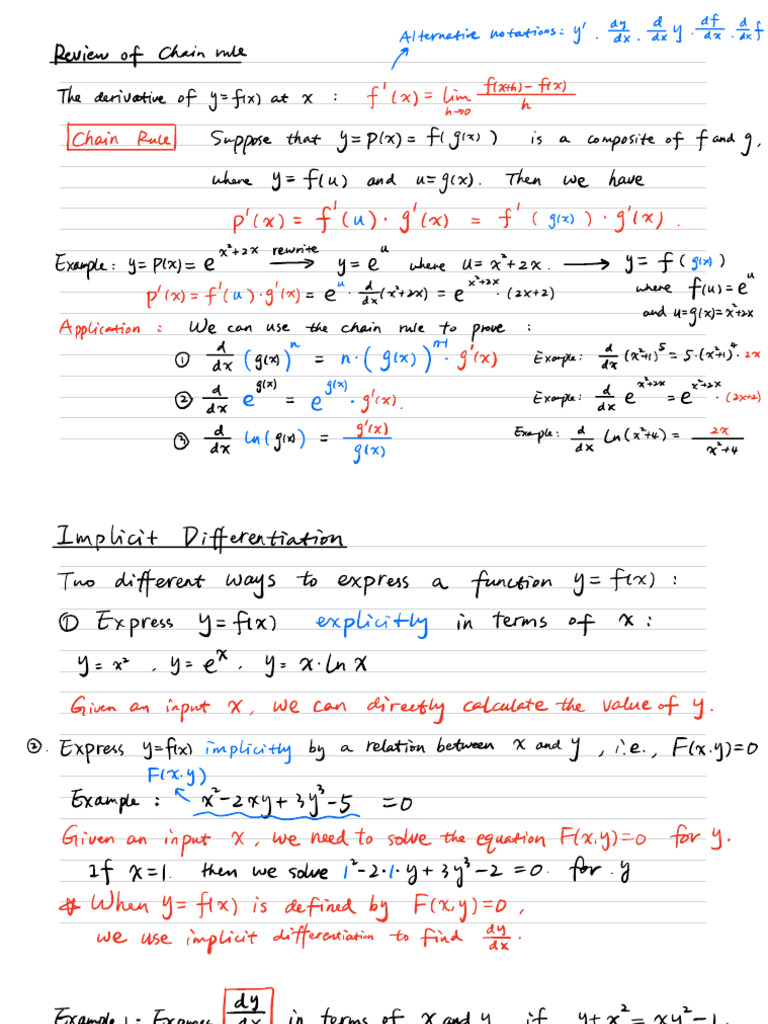 Alternative notations: y' . dy/dx . d/dx y . df/dx . d/dx f
Review of Chain rule
The derivative of y=f(x) at x : f'(x) = lim h→0 f(x+h)-f(x)/h
Chain Rule Suppose that y=P(x)=f(g(x)) is a composite of f and g,
where y=f(u) and u=g(x). Then we have
P'(x) = f'(u)·g'(x) = f'(g(x))·g'(x).
Example: y=P(x)=e^(x²+2x) rewrite → y=e^u where u=x²+2x. → y=f(g(x))
P'(x)=f'(u)·g'(x)=e^u·d/dx(x²+2x)=e^(x²+2x)·(2x+2) where f(u)=e^u
and u=g(x)=x²+2x
Application: We can use the chain rule to prove :
① d/dx (g(x))^n = n·(g(x))^(n-1)·g'(x) Example: d/dx (x²+1)^5 = 5·(x²+1)^4·2x
② d/dx e^(g(x)) = e^(g(x))·g'(x). Example: d/dx e^(x²+2x) = e^(x²+2x)·(2x+2)
③ d/dx ln(g(x)) = g'(x)/g(x) Example: d/dx ln(x²+4) = 2x/x²+4
Implicit Differentiation
Two different ways to express a function y=f(x) :
① Express y=f(x) explicitly in terms of x :
y=x² , y=e^x , y=x·ln x
Given an input x, we can directly calculate the value of y.
②. Express y=f(x) implicitly by a relation between x and y , i.e., F(x.y)=0
F(x.y)
Example : x²-2xy+3y³-5 =0
Given an input x, we need to solve the equation F(x,y)=0 for y.
If x=1. then we solve 1²-2·1·y+3y³-2=0. for y
* When y=f(x) is defined by F(x,y)=0 ,
we use implicit differentiation to find dy/dx .
Example 1: Express dy/dx in terms of x and y if y+x²=xy²-1.